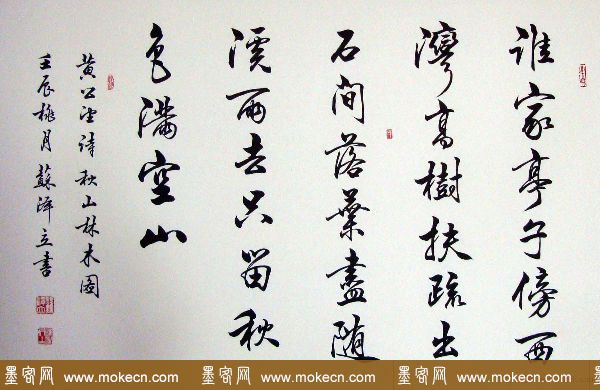 誰家亭子傍西
灣高樹扶疏出
石间落葉盡随
溪雨去只留秋
色滿空山
黄公望诗秋山林木图
壬辰桃月蘇泽立書
墨客网 www.mokecn.com 墨客网 www.mokecn.com 墨客网 www.mokecn.com